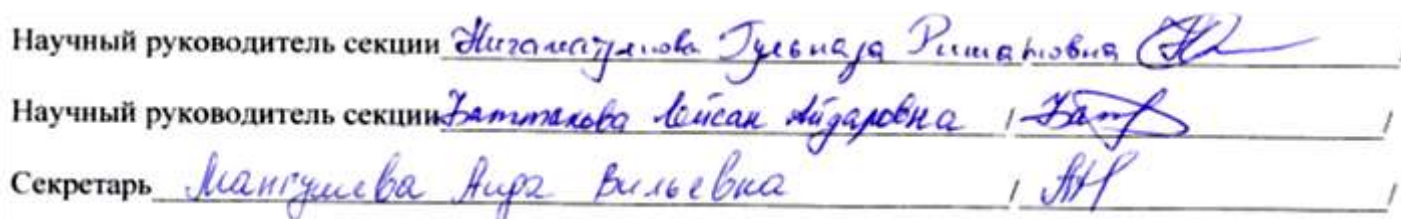 Научный руководитель секции Нигаматуллова Гульназа Ришатовна /
Научный руководитель секции Баттакова Лейсан Айдаровна / Бат /
Секретарь Мангушева Аида Вильевна / АМ /